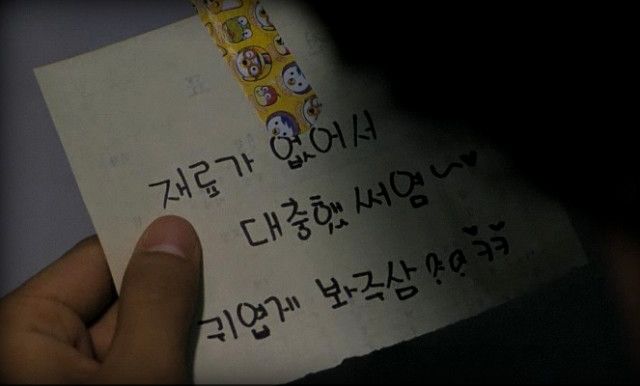 재료가 없어서
대충했써염~♥
귀엽게 봐주삼?? ㅋㅋ